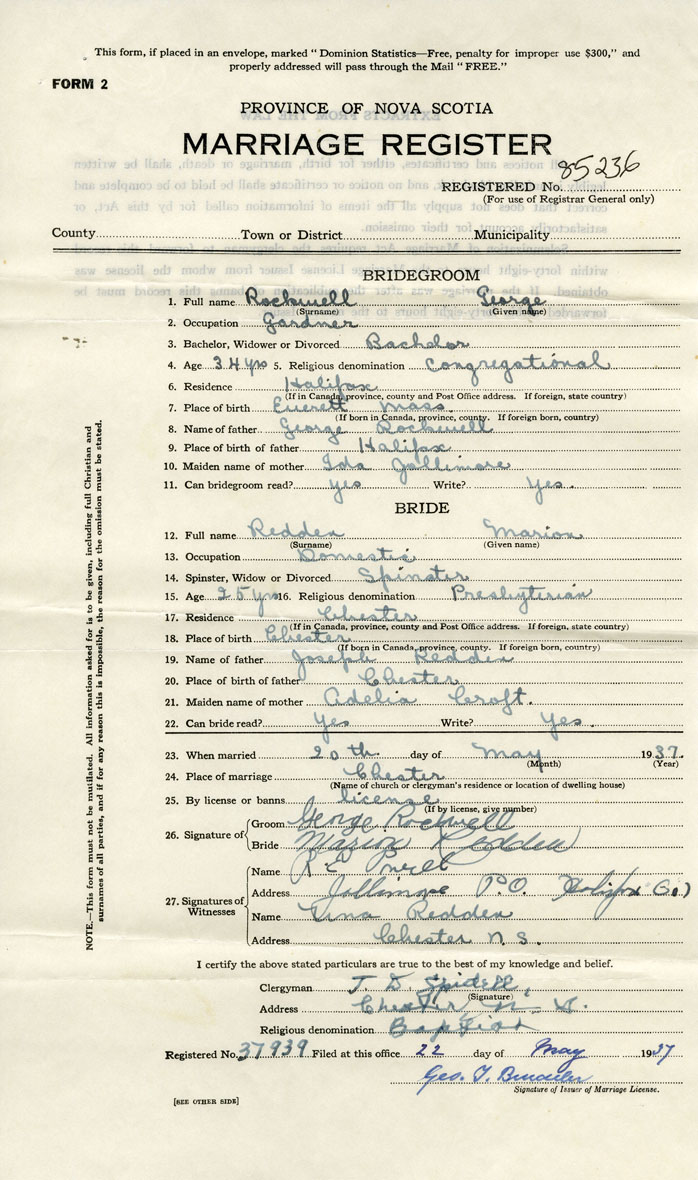 This form, if placed in an envelope, marked "Dominion Statistics—Free, penalty for improper use $300," and
properly addressed will pass through the Mail "FREE."
FORM 2
PROVINCE OF NOVA SCOTIA
MARRIAGE REGISTER
REGISTERED No. 85236
(For use of Registrar General only)
County Town or District Municipality
BRIDEGROOM
1. Full name Rockwell George
(Surname) (Given name)
2. Occupation Gardner
3. Bachelor, Widower or Divorced Bachelor
4. Age 34 yrs 5. Religious denomination Congregational
6. Residence Halifax
(If in Canada, province, county and Post Office address. If foreign, state country)
7. Place of birth Everett Mass
(If born in Canada, province, county. If foreign born, country)
8. Name of father George Rockwell
9. Place of birth of father Halifax
10. Maiden name of mother Ida Jollimore
11. Can bridegroom read? yes Write? Yes.
BRIDE
12. Full name Redden Marion
(Surname) (Given name)
13. Occupation Domestic
14. Spinster, Widow or Divorced Spinster
15. Age 25 yrs 16. Religious denomination Presbyterian
17. Residence Chester
(If in Canada, province, county and Post Office address. If foreign, state country)
18. Place of birth Chester
(If born in Canada, province, county. If foreign born, country)
19. Name of father Joseph Redden
20. Place of birth of father Chester
21. Maiden name of mother Adelia Croft.
22. Can bride read? Yes Write? Yes.
23. When married 20th day of May 1937.
(Month) (Year)
24. Place of marriage Chester
(Name of church or clergyman's residence or location of dwelling house)
25. By license or banns license
(If by license, give number)
26. Signature of
Groom George Rockwell
Bride Marion Redden
27. Signatures of Witnesses
Name R E
Address Jollimore P.O. Halifax Co.)
Name Redden
Address Chester N.S.
I certify the above stated particulars are true to the best of my knowledge and belief.
Clergyman T. D. Spidell,
(Signature)
Address Chester N. S.
Religious denomination Baptist
Registered No. 37939 Filed at this office 22 day of May 1937
Geo. T.
Signature of Issuer of Marriage License.
[SEE OTHER SIDE]
NOTE.—This form must not be mutilated. All information asked for is to be given, including full Christian and
surnames of all parties, and if for any reason this is impossible, the reason for the omission must be stated.